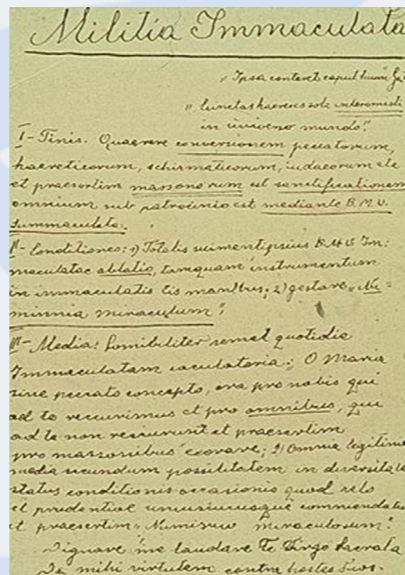 Militia Immaculata
„Ipsa conteret caput tuum" G
„Cunctas haereses sola interemisti
in universo mundo".
I- Finis. Quaerere conversionem peccatorum,
haereticorum, schismaticorum, iudaeorum etc
et praesertim massonorum et sanctificationem
omnium sub patrocinio et mediante B.M.V.
Immaculata.
II- Conditiones: 1) Totalis suimetipsius B.M.V. Im:
maculatae oblatio, tamquam instrumentum
in immaculatis eis manibus; 2) gestare „Nu-
misma miraculosum".
III- Media: 1) omibiliter semet quotidie
Immaculatam iaculatoria: „O Maria
sine peccato concepta, ora pro nobis qui
ad te recurrimus et pro omnibus, qui
ad te non recurrunt et praesertim
pro massonibus" exorare; 2) Omnia legitima
media secundum possibilitatem in diversitate
status conditionis occasionis quod zelo
et prudentiae uniuscuiusque commendatur
et praesertim „Numisma miraculosum".
Dignare me laudare Te Virgo Sacrata
Da mihi virtutem contra hostes Tuos.